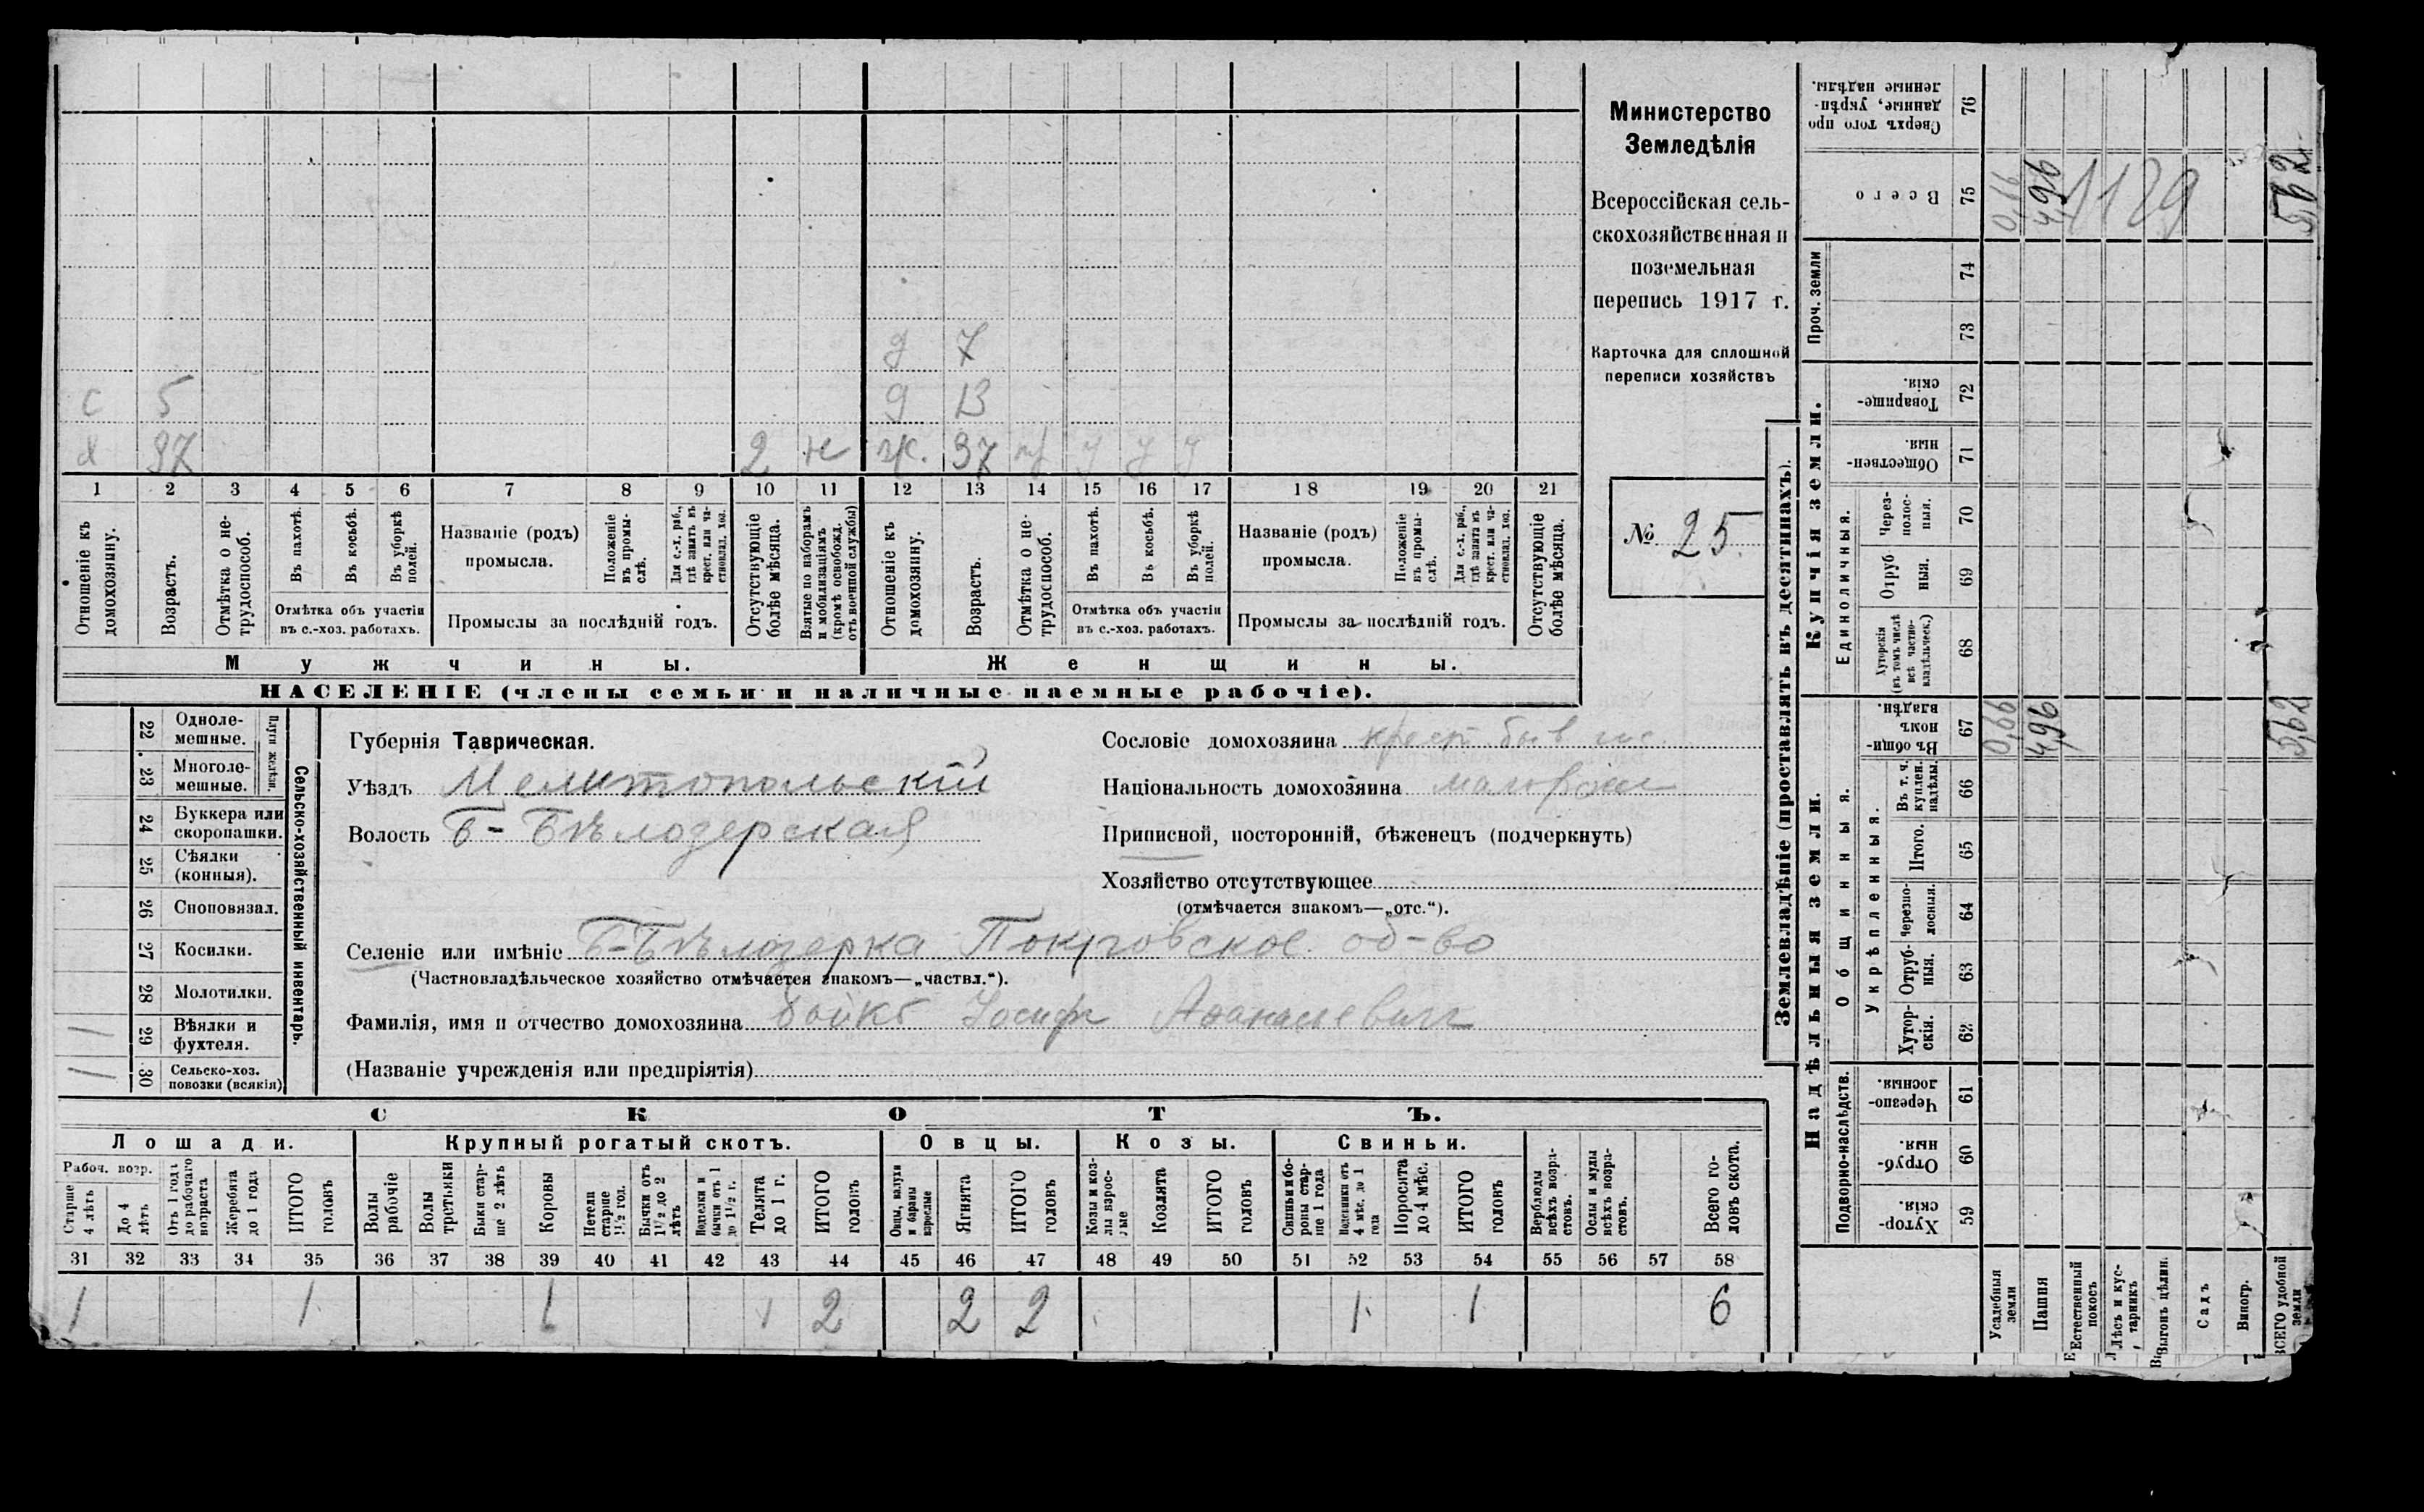 Министерство
Земледѣлія
Всероссійская сель-
скохозяйственная и
поземельная
перепись 1917 г.
Карточка для сплошной
переписи хозяйствъ
№ 25.
д 7
с 5 д 13
х 37 2 н ж. 37 у у у
1 2 3 4 5 6 7 8 9 10 11 12 13 14 15 16 17 18 19 20 21
Отношеніе къ домохозяину.
Возрастъ.
Отмѣтка о не-трудоспособ.
Въ пахотѣ.
Въ косьбѣ.
Въ уборкѣ полей.
Отмѣтка объ участіи въ с.-хоз. работахъ.
Названіе (родъ) промысла.
Положеніе въ промы-слѣ.
Для с.-х. раб., гдѣ занятъ въ крест. или ча-стновлад. хоз.
Промыслы за послѣдній годъ.
Отсутствующіе болѣе мѣсяца.
Взятые по наборамъ и мобилизаціямъ (кромѣ освобожд. отъ военной службы)
Отношеніе къ домохозяину.
Возрастъ.
Отмѣтка о не-трудоспособ.
Въ пахотѣ.
Въ косьбѣ.
Въ уборкѣ полей.
Отмѣтка объ участіи въ с.-хоз. работахъ.
Названіе (родъ) промысла.
Положеніе въ промы-слѣ.
Для с.-х. раб., гдѣ занятъ въ крест. или ча-стновлад. хоз.
Промыслы за послѣдній годъ.
Отсутствующіе болѣе мѣсяца.
Мужчины. Женщины.
НАСЕЛЕНІЕ (члены семьи и наличные наемные рабочіе).
Сельско-хозяйственный инвентарь.
Плуги желѣзн.
22 Одноле-мешные.
23 Многоле-мешные.
24 Буккера или скоропашки.
25 Сѣялки (конныя).
26 Сноповязал.
27 Косилки.
28 Молотилки.
1 29 Вѣялки и фухтеля.
1 30 Сельско-хоз. повозки (всякія)
Губернія Таврическая.
Уѣздъ Мелитопольскій
Волость Б-Бѣлозерская
Сословіе домохозяина крест. быв гос.
Національность домохозяина малоросс
Приписной, посторонній, бѣженецъ (подчеркнуть)
Хозяйство отсутствующее
(отмѣчается знакомъ—„отс.“).
Селеніе или имѣніе Б-Бѣлозерка Покровское об-во
(Частновладѣльческое хозяйство отмѣчается знакомъ—„частвл.“).
Фамилія, имя и отчество домохозяина Бойко Іосифъ Афанасьевич
(Названіе учрежденія или предпріятія)
СКОТЪ.
Лошади. Крупный рогатый скотъ. Овцы. Козы. Свиньи.
Рабоч. возр.
Старше 4 лѣтъ
До 4 лѣтъ
Отъ 1 годъ до рабочаго возраста
Жеребята до 1 года
ИТОГО головъ
Волы рабочіе
Волы третьяки
Быки стар-ше 2 лѣтъ
Коровы
Нетели старше 1½ год.
Бычки отъ 1½ до 2 лѣтъ
Подтелки и бычки отъ 1 до 1½ г.
Телята до 1 г.
ИТОГО головъ
Овцы, валухи и бараны взрослые
Ягнята
ИТОГО головъ
Козы и коз-лы взрос-лые
Козлята
ИТОГО головъ
Свиньи и бо-ровы стар-ше 1 года
Подсвинки отъ 4 мѣс. до 1 года
Поросята до 4 мѣс.
ИТОГО головъ
Верблюды всѣхъ возра-стовъ.
Ослы и мулы всѣхъ возра-стовъ.
Всего го-ловъ скота.
31 32 33 34 35 36 37 38 39 40 41 42 43 44 45 46 47 48 49 50 51 52 53 54 55 56 57 58
1 1 1 1 2 2 2 1 1 6
Землевладѣніе (проставлять въ десятинахъ).
Надѣльныя земли. Купчія земли. Проч. земли
Подворно-наслѣдств.
Общинныя.
Укрѣпленныя.
Единоличныя.
59 Хутор-скія.
60 Отруб-ныя.
61 Черезпо-лосныя.
62 Хутор-скія.
63 Отруб-ныя.
64 Черезпо-лосныя.
65 Итого.
66 Въ т. ч. куплен. надѣлы.
67 Въ общин-номъ владѣн.
68 Хуторскія (въ томъ числѣ всѣ частно-владѣльческ.)
69 Отруб ныя.
70 Через-полос-ныя.
71 Обществен-ныя.
72 Товарище-скія.
73
74
75 Всего
76 Сверхъ того про данные, укрѣп-ленные надѣлы.
Усадебныя земли 0,66 0,66
Пашня 4,96 4,96
Естественный покосъ
Лѣсъ и кус-тарникъ
Выгонъ цѣлин.
Садъ
Виногр.
ВСЕГО удобной земли 5,62 5,62
1129